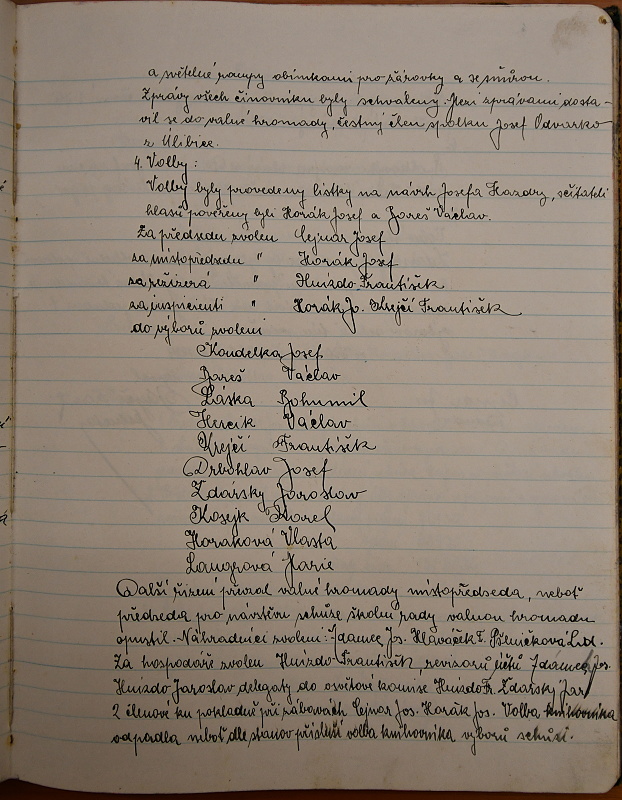 a světelné rampy obímkami pro žárovky a se šňůrou.
Zprávy všech činovníku byly schváleny. Mezi zprávami dosta-
vil se do valné hromady, čestný člen spolku Josef Odvarko
z Úlibice.
4. Volby:
Volby byly provedeny lístky na návrh Josefa Hazdry, sčítateli
hlasů pověřeny byli Horák Josef a Bareš Václav.
Za předsedu zvolen Cejnar Josef
za místopředsedu " Horák Josef
za režizerá " Hnízdo František
za inspicienti " Horák Jo. Krejčí František
do výborů zvoleni
Koudelka Josef
Bareš Václav
Láska Bohumil
Hercik Václav
Krejčí František
Drbohlav Josef
Zdárský Jaroslav
Kosejk Karel
Horaková Vlasta
Langrová Marie
Další řízení převzal valné hromady místopředseda, neboť
předseda pro návštěvu schůze školní rady valnou hromadu
opustil. Náhradníci zvoleni: Adamec Jos. Hlaváček F. Pšeničková Lid.
Za hospodáře zvolen Hnízdo František, revizorů účtů Adamec Jos.
Hnízdo Jaroslav delegaty do osvětové komise Hnízdo Fr. Zdarský Jar
2 členove ku pokladně při zábavách Cejnar Jos. Horák Jos. Volba knihovníka
odpadla neboť dle stanov přísluší volba knihovníka výborů schůzi.